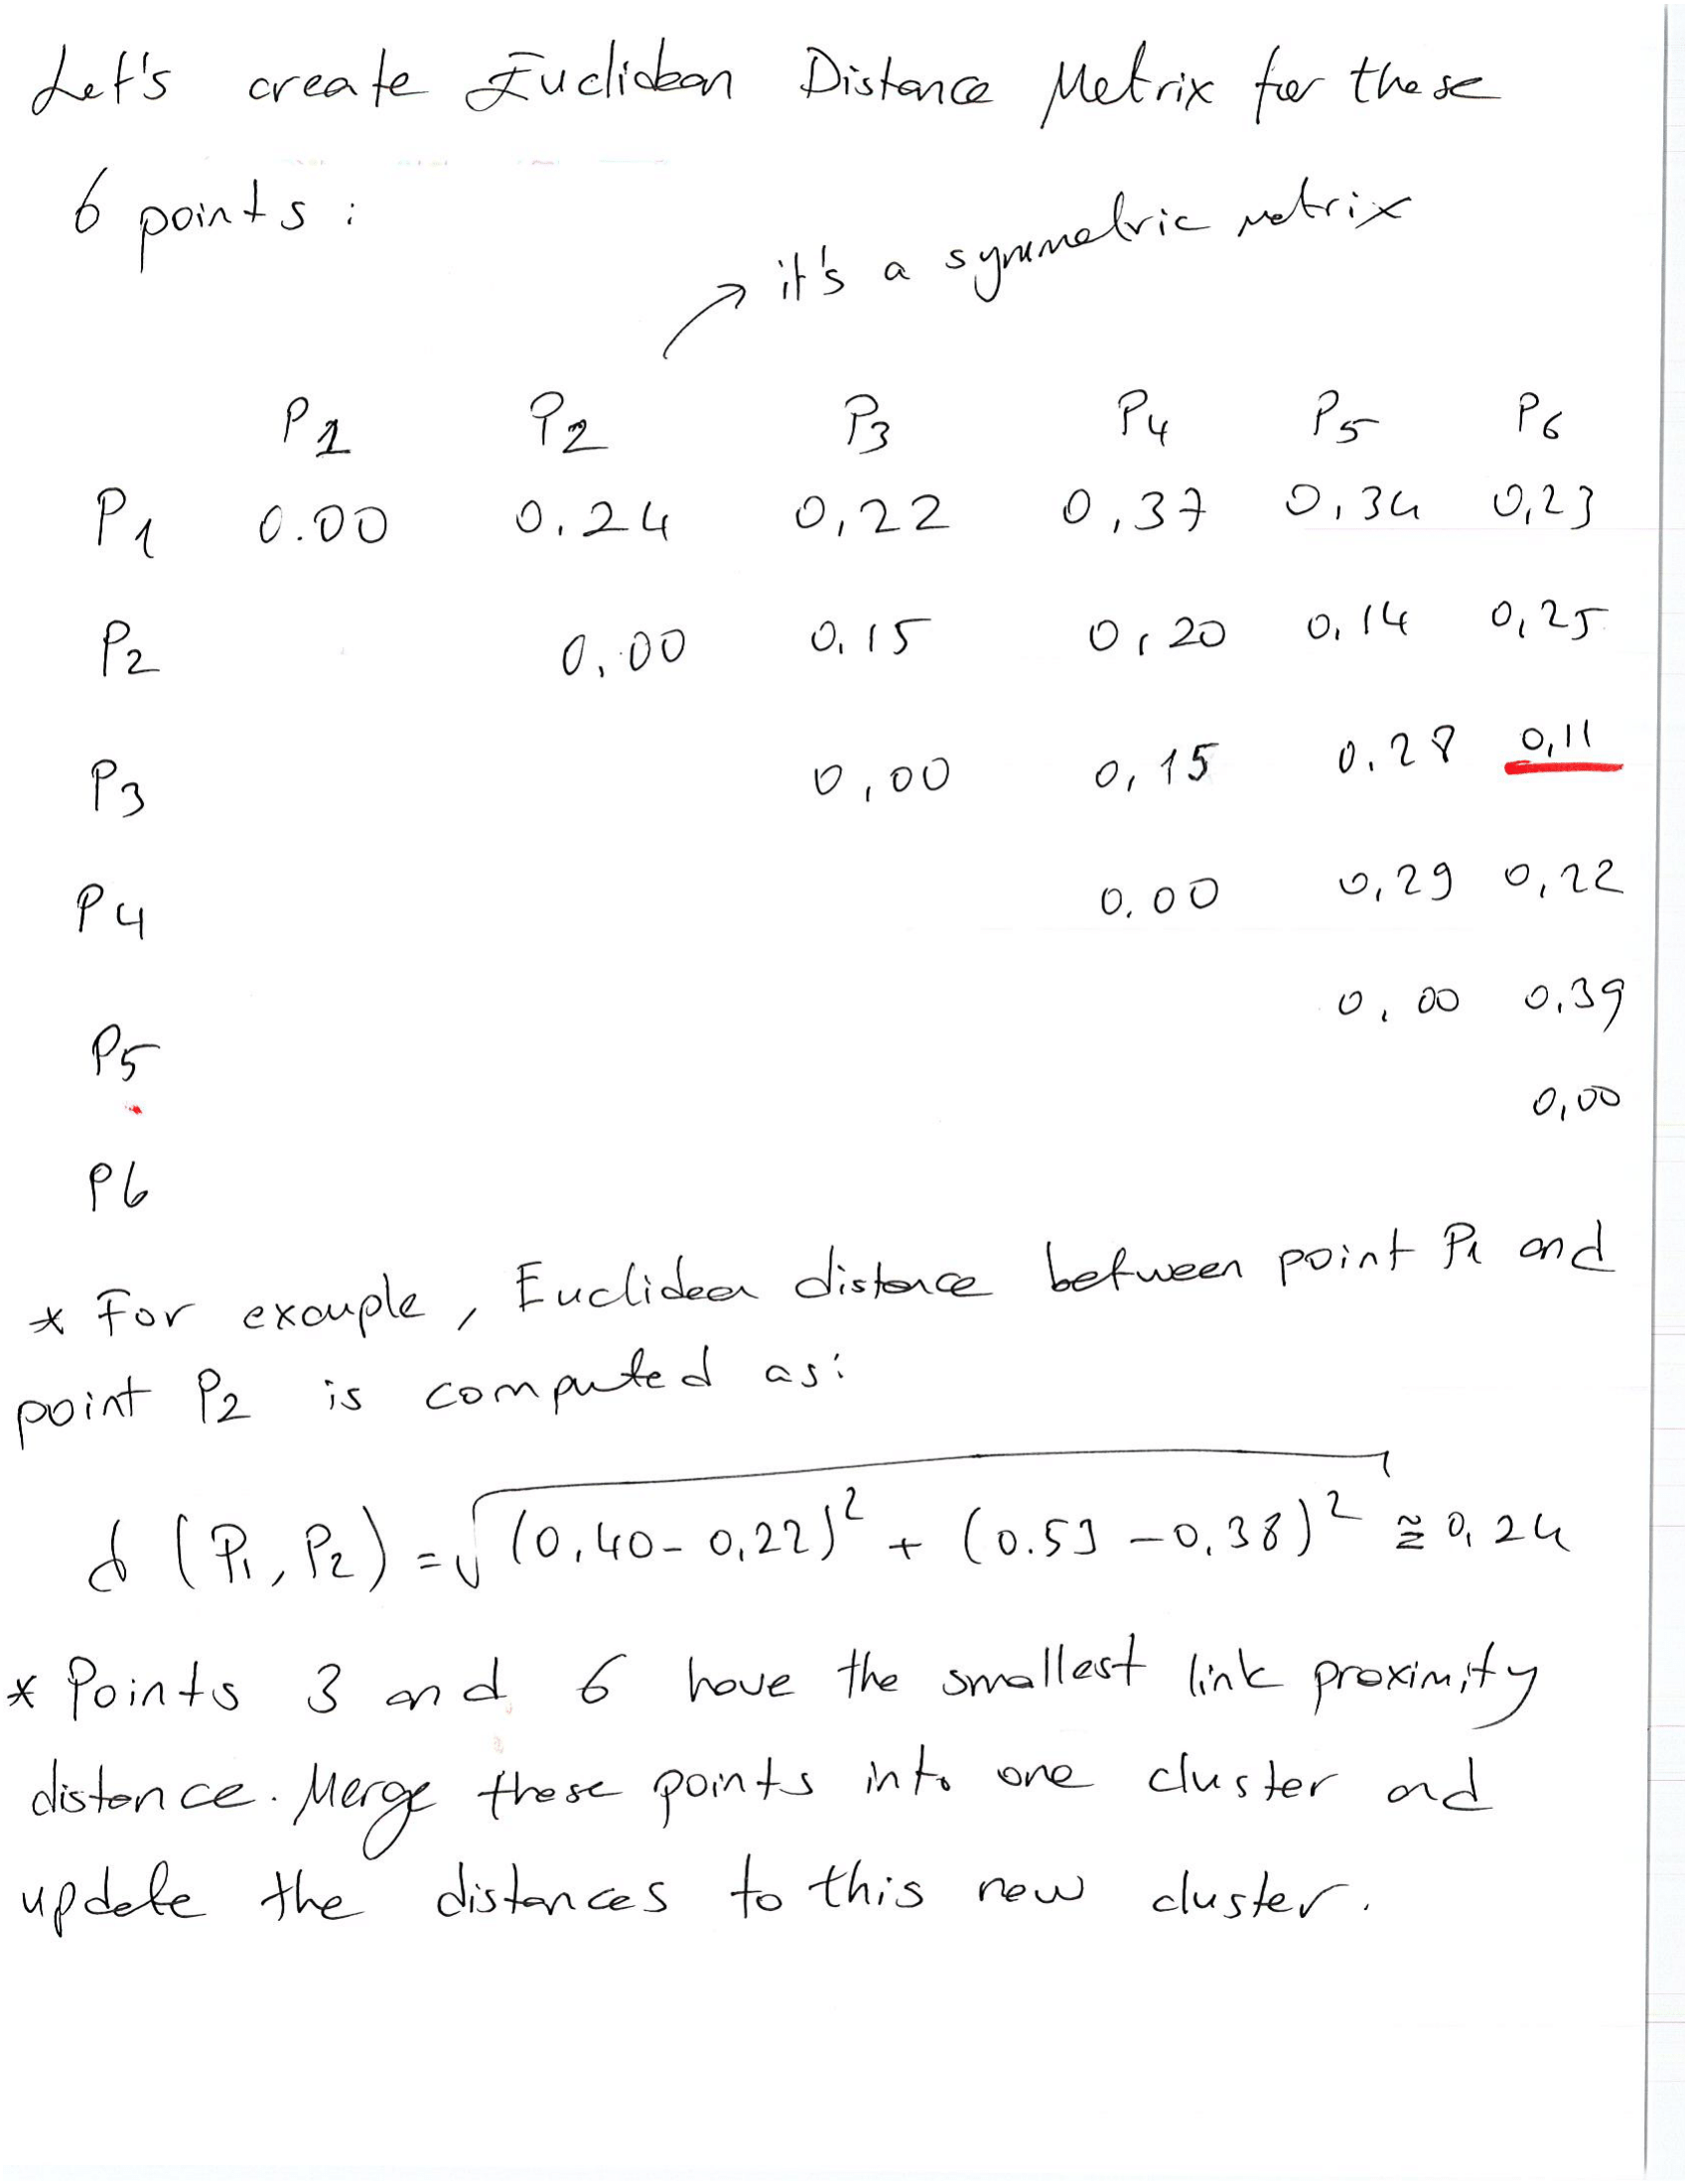 Let's create Euclidean Distance Matrix for these
6 points :
it's a symmetric matrix
P1 P2 P3 P4 P5 P6
P1 0.00 0.24 0,22 0,37 0,34 0,23
P2 0,00 0,15 0,20 0,14 0,25
P3 0,00 0,15 0,28 0,11
P4 0.00 0,29 0,22
P5 0,00 0,39
P6 0,00
* For example, Euclidean distance between point P1 and
point P2 is computed as:
d (P1, P2) = √(0,40 - 0,22)² + (0.53 - 0,38)² ≅ 0,24
* Points 3 and 6 have the smallest link proximity
distance. Merge these points into one cluster and
update the distances to this new cluster.